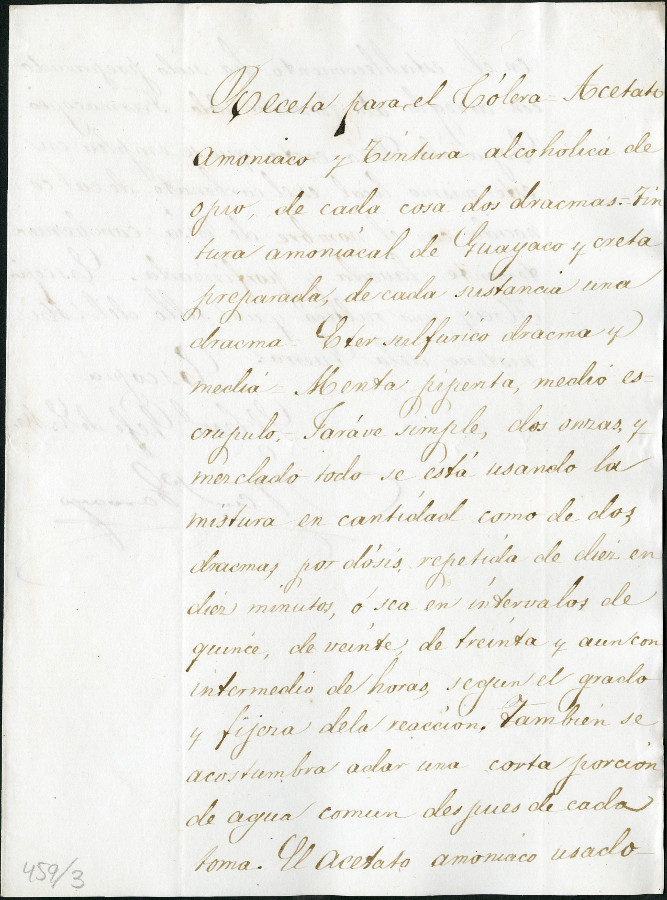 Receta para el Cólera = Acetato
amoniaco y Tintura alcoholica de
opio, de cada cosa dos dracmas = Tin
tura amoniacal de Guayaco y creta
preparada, de cada sustancia una
dracma = Eter sulfurico dracma y
media = Menta pipenta, medio es=
crupulo.= Jaráve simple, dos onzas, y
mezclado todo se está usando la
mistura en cantidad como de dos
dracmas, por dósis, repetida de diez en
diez minutos, ó sea en intervalos de
quince, de veinte, de treinta y aun con
intermedio de horas, segun el grado
y fijeza dela reaccion. Tambien se
acostumbra adar una corta porción
de agua comun despues de cada
toma. El acetato amoniaco usado
459/3